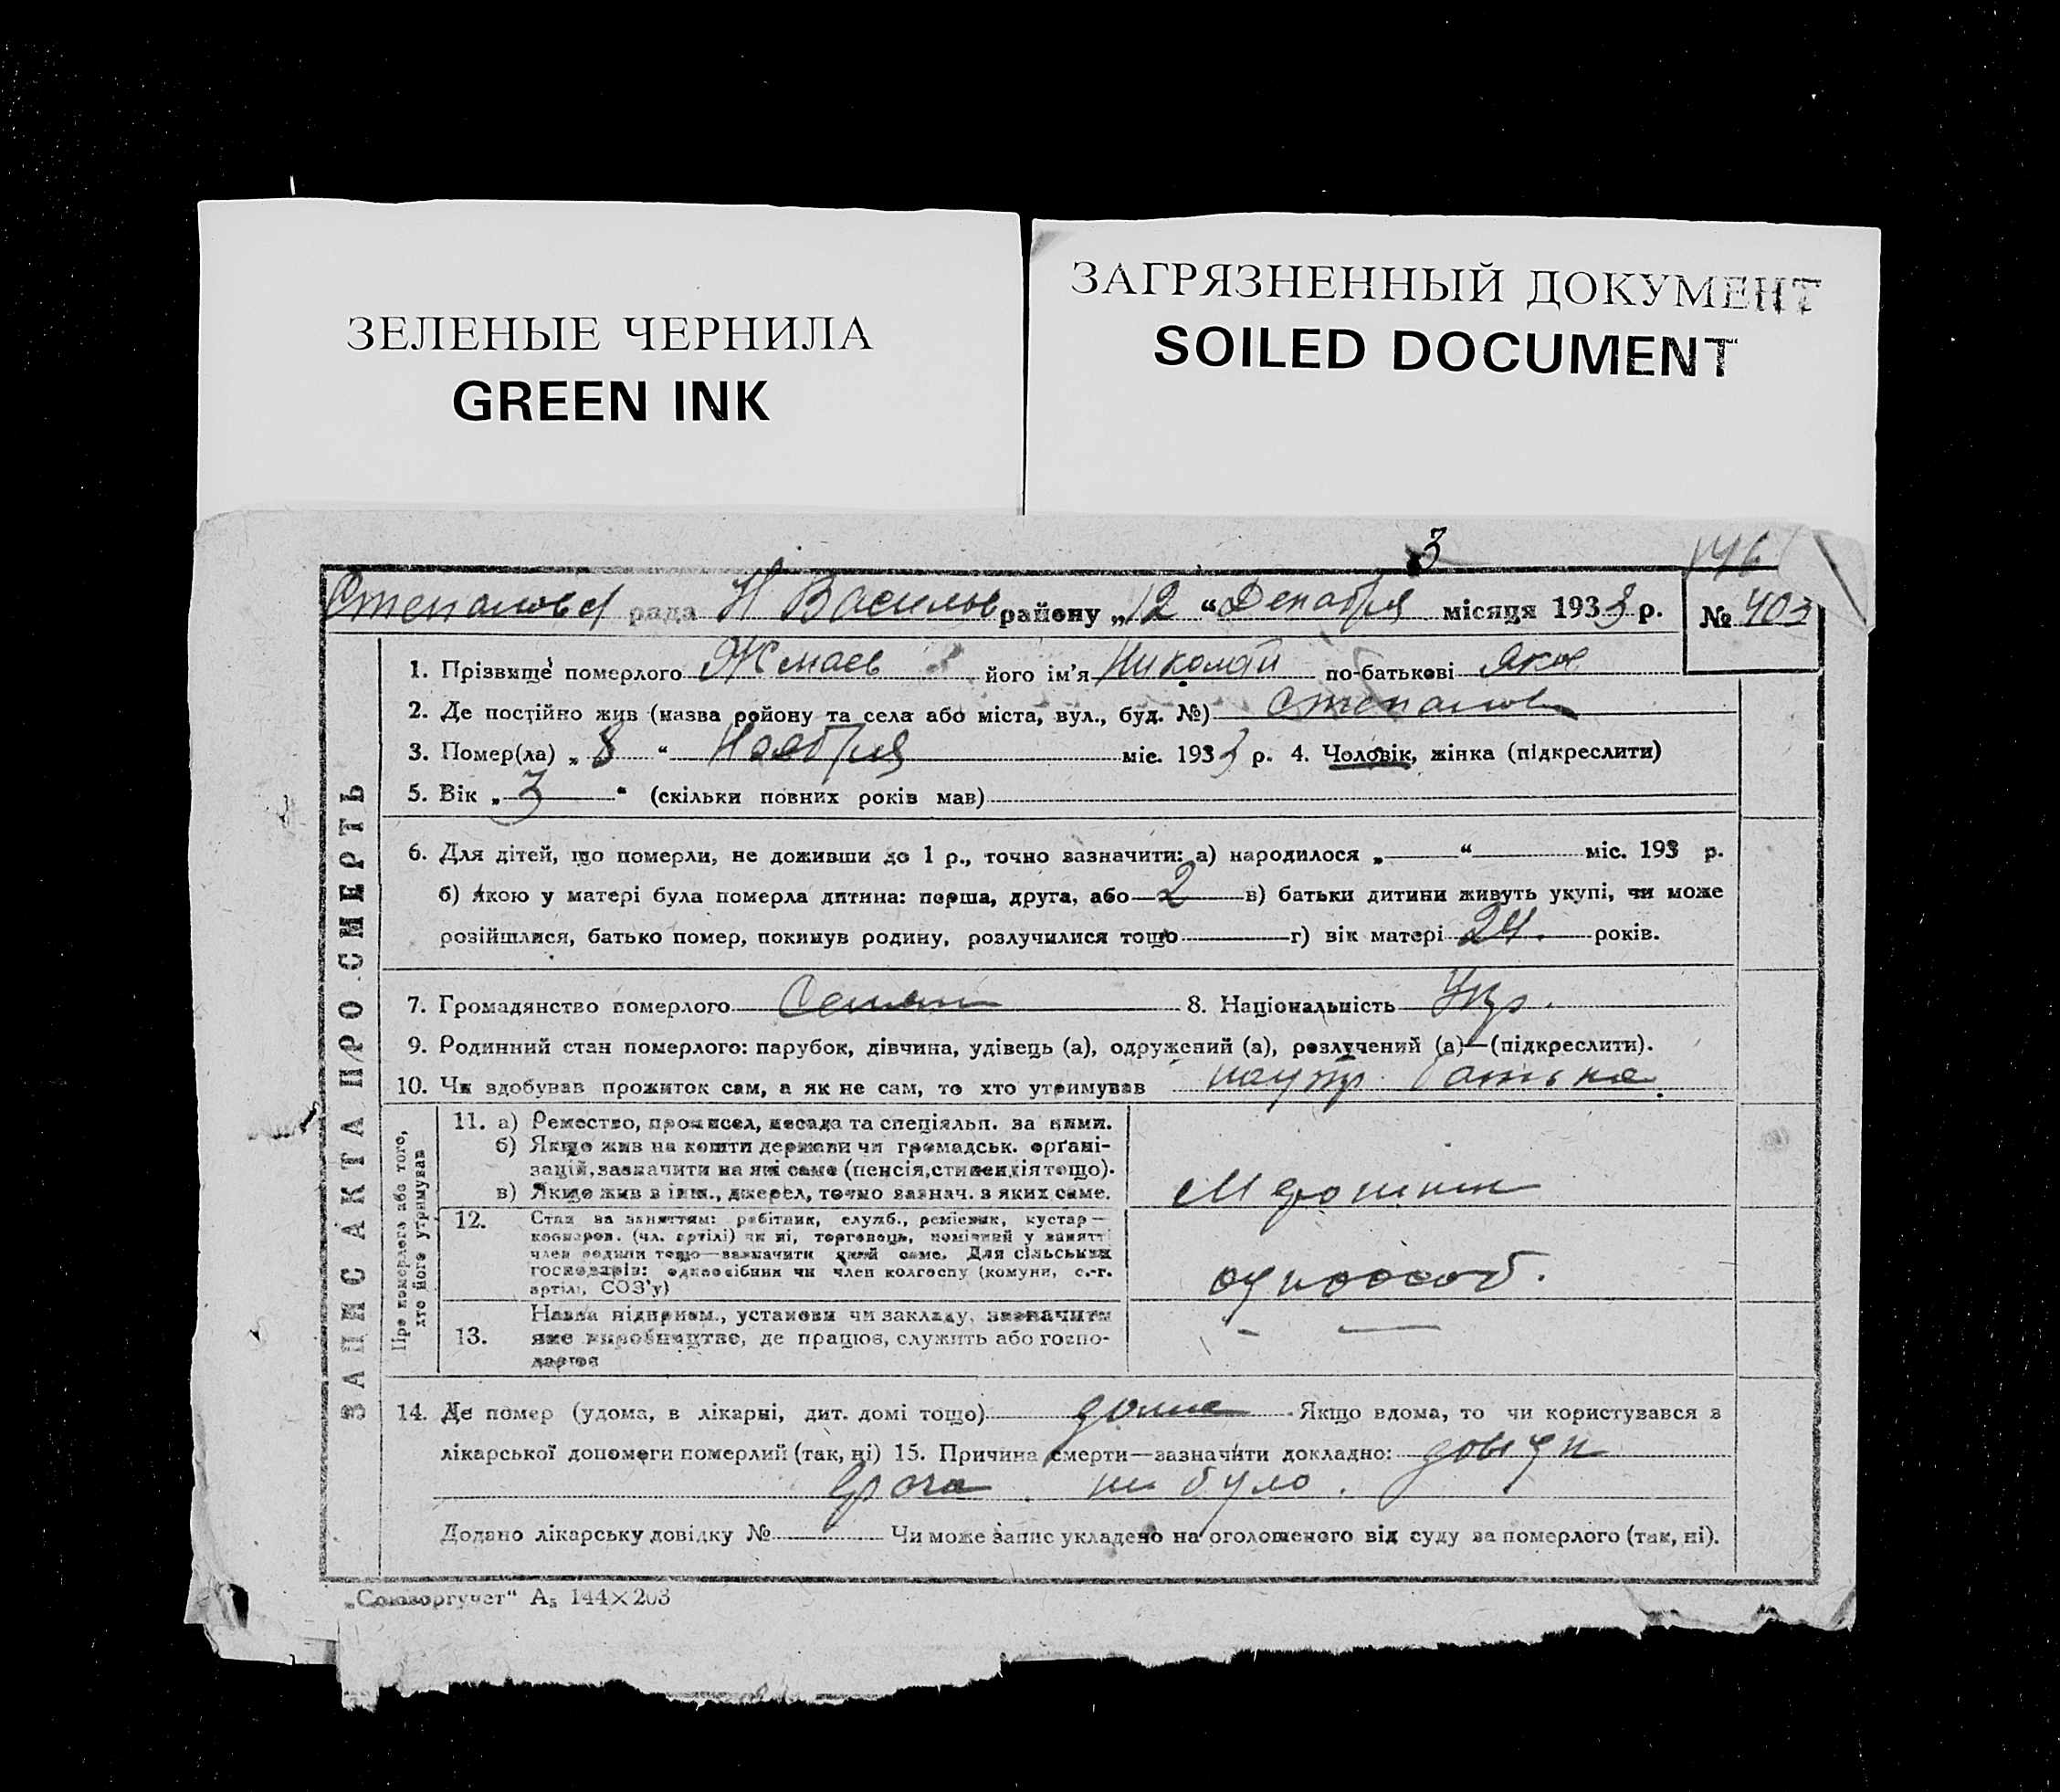 ЗЕЛЕНЫЕ ЧЕРНИЛА
GREEN INK
ЗАГРЯЗНЕННЫЙ ДОКУМЕНТ
SOILED DOCUMENT
3
146
рада Н Васильов району „12“ Декабря місяця 1933 р. № 403
ЗАПИС АКТА ПРО СМЕРТЬ
1. Прізвище померлого його ім'я Николай по-батькові Яков
2. Де постійно жив (назва району та села або міста, вул., буд. №) Степановк
3. Помер(ла) „8“ Ноября міс. 1933 р. 4. Чоловік, жінка (підкреслити)
5. Вік „3“ (скільки повних років мав)
6. Для дітей, що померли, не доживши до 1 р., точно зазначити: а) народилося „ “ міс. 193 р.
б) якою у матері була померла дитина: перша, друга, або 2 в) батьки дитини живуть укупі, чи може
розійшлися, батько помер, покинув родину, розлучилися тощо г) вік матері 24. років.
7. Громадянство померлого 8. Національність Укр.
9. Родинний стан померлого: парубок, дівчина, удівець (а), одружений (а), розлучений (а)—(підкреслити).
10. Чи здобував прожиток сам, а як не сам, то хто утримував батька.
Про померлого або того,
хто його утримував
11. а) Ремество, промисел, посада та спеціяльн. за ними.
б) Якщо жив на кошти держави чи громадськ. органі-
зацій, зазначити на які саме (пенсія, стипендія тощо).
в) Якщо жив з інш., джерел, точно зазнач. з яких саме.
12. Стан за заняттям: робітник, служб., ремісник, кустар—
кооперов. (чл. артілі) чи ні, торговець, помічний у занятті
член родини тощо—зазначити який саме. Для сільських
господарів: одноосібник чи член колгоспу (комуни, с.-г.
артілі, СОЗ'у)
одноособ.
13. Назва підприєм., установи чи закладу, зазначити
яке виробництво, де працює, служить або госпо-
дарює
14. Де помер (удома, в лікарні, дит. домі тощо) дома Якщо вдома, то чи користувався з
лікарської допомоги померлий (так, ні) 15. Причина смерти—зазначити докладно:
врача не було.
Додано лікарську довідку № Чи може запис укладено на оголошеного від суду за померлого (так, ні).
„Союзоргучет“ А₅ 144×203